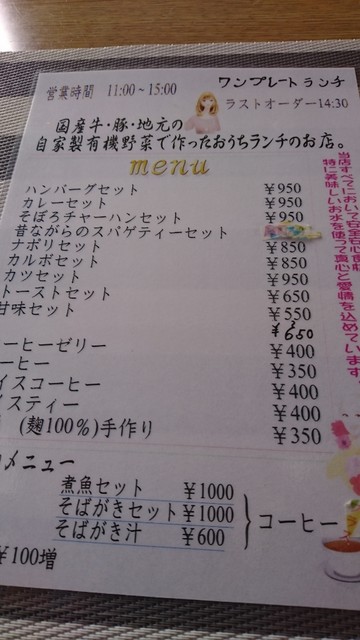 営業時間 11:00~15:00
ワンプレートランチ
ラストオーダー14:30
国産牛・豚・地元の
自家製有機野菜で作ったおうちランチのお店。
menu
ハンバーグセット ¥950
カレーセット ¥950
そぼろチャーハンセット ¥950
昔ながらのスパゲティーセット
ナポリセット ¥850
カルボセット ¥850
カツセット ¥950
トーストセット ¥650
甘味セット ¥550
¥650
ーヒーゼリー ¥400
ーヒー ¥350
イスコーヒー ¥400
イスティー ¥400
(麹100%)手作り ¥350
メニュー
煮魚セット ¥1000
そばがきセット ¥1000
そばがき汁 ¥600
コーヒー
¥100増
当店すべてにおい
特に美味しいお水を使って真心と愛情を込めています